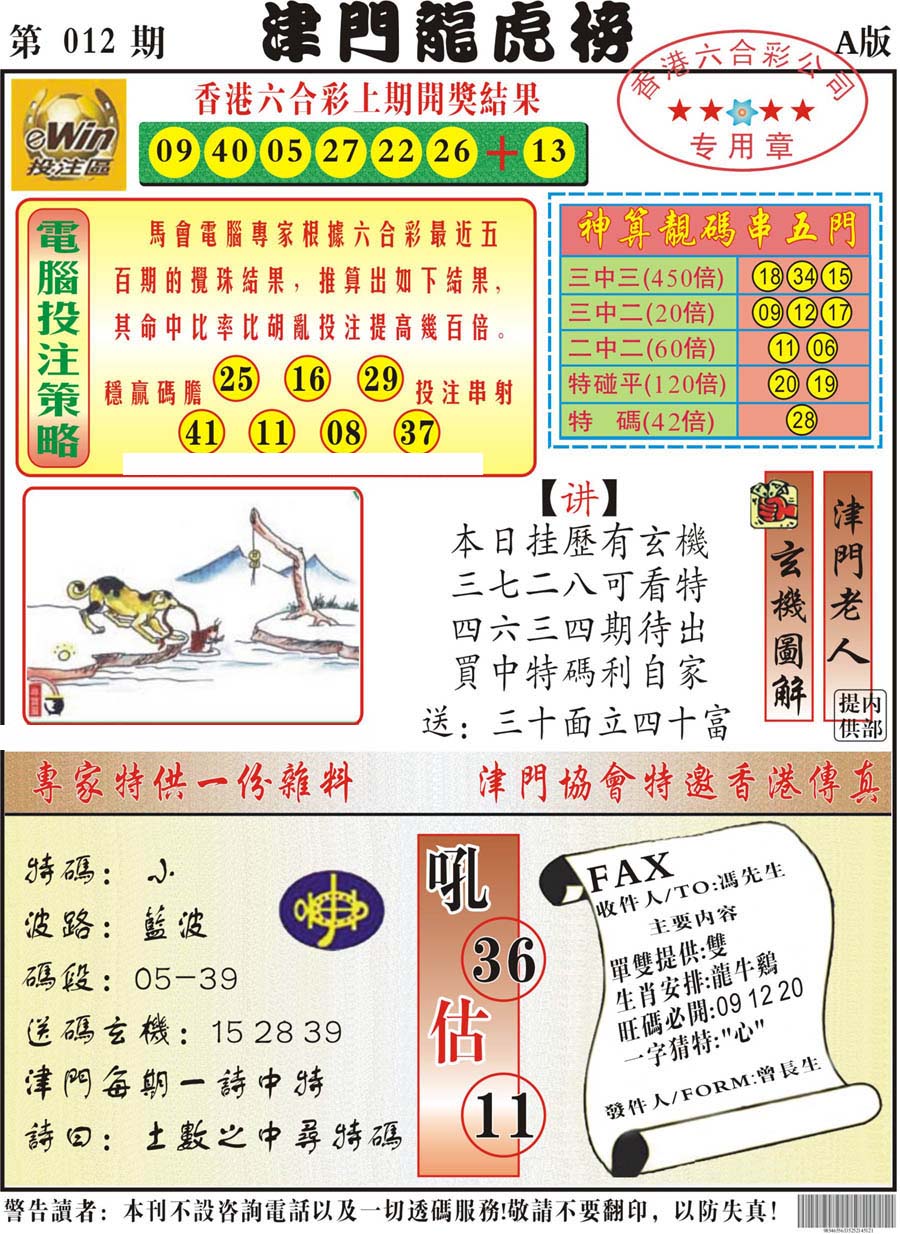 第 012 期
津門龍虎榜
A版
香港六合彩公司
专用章
eWin
投注區
香港六合彩上期開獎結果
09 40 05 27 22 26 + 13
電腦投注策略
馬會電腦專家根據六合彩最近五
百期的攪珠結果，推算出如下結果，
其命中比率比胡亂投注提高幾百倍。
穩贏碼膽 25 16 29 投注串射
41 11 08 37
神算靚碼串五門
三中三(450倍) 18 34 15
三中二(20倍) 09 12 17
二中二(60倍) 11 06
特碰平(120倍) 20 19
特 碼(42倍) 28
【讲】
本日挂歷有玄機
三七二八可看特
四六三四期待出
買中特碼利自家
送：三十面立四十富
玄機圖解
津門老人
内部提供
專家特供一份雜料
津門協會特邀香港傳真
特碼：小
波路：藍波
碼段：05-39
送碼玄機：15 28 39
津門每期一詩中特
詩曰：土數之中尋特碼
吼
36
估
11
FAX
收件人/TO:馮先生
主要内容
單雙提供:雙
生肖安排:龍牛鷄
旺碼必開:09 12 20
一字猜特:"心"
發件人/FORM:曾長生
警告讀者：本刊不設咨詢電話以及一切透碼服務!敬請不要翻印，以防失真!